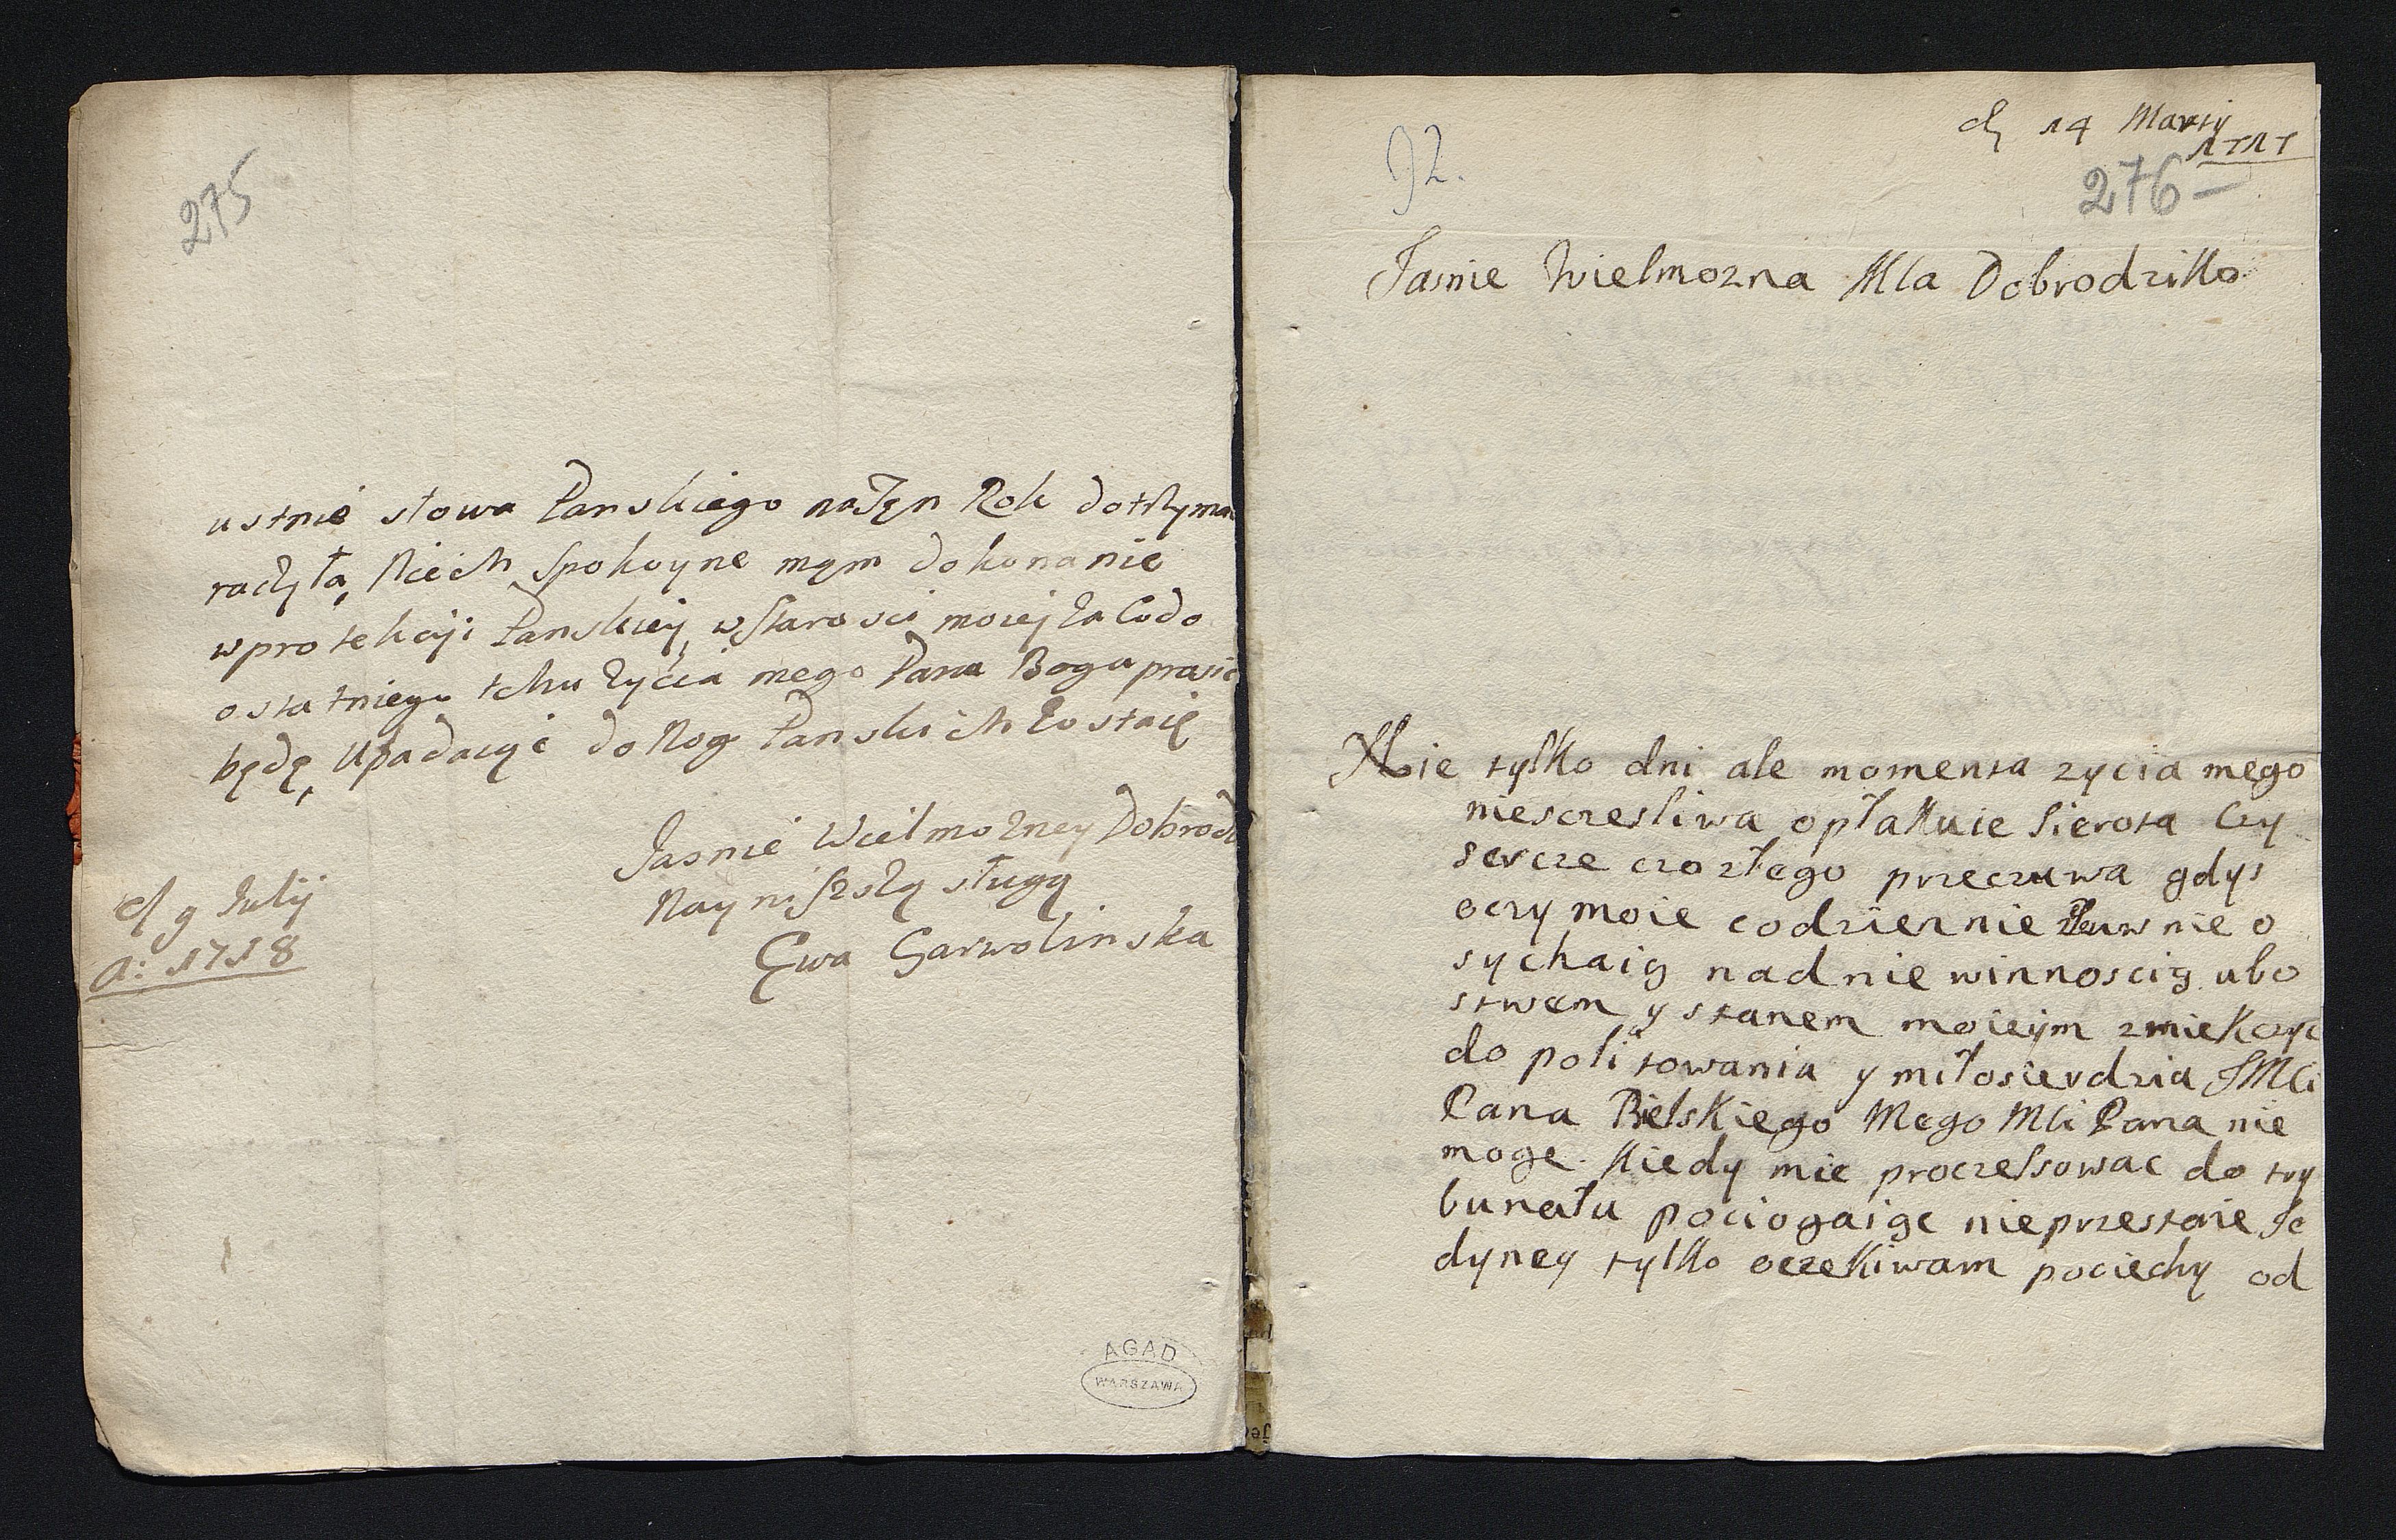 275
ustnie słowa Panskiego naTęn Rok dotrzyma
raczyła, Niech spokoyne męm dokonanie
wprotekcji Panskiey, wstarosci moiej za Co do
ostatniego tchu życia mego Pana Boga prasic
będę, Upadaiąc do Nog Panskich Zostaię
Jasnie Wielmozney Dobrodz
Nayniszszą sługą
Ewa Garwolinska
d 9 Julij
A: 1718
AGAD
WARSZAWA
d 14 Martij
1717
92.
276
Jasnie Wielmozna Mla Dobrodziko
Nie tylko dni ale momenta zycia mego
niesczesliwa opłakuie Sierota Czy
sercze czozłego przeczuwa gdys
oczy moie codziennie nie o
sychaią nad nie winnoscią ubo
stwem y stanem moieym zmiekczyc
do politowania y miłosierdzia JMCi
Pana Bielskiego Mego Mci Pana nie
moge. Kiedy mie proczessowac do try
bunału pociogaiąc nieprzestaie Je
dyney tylko oczekiwam pociechy od